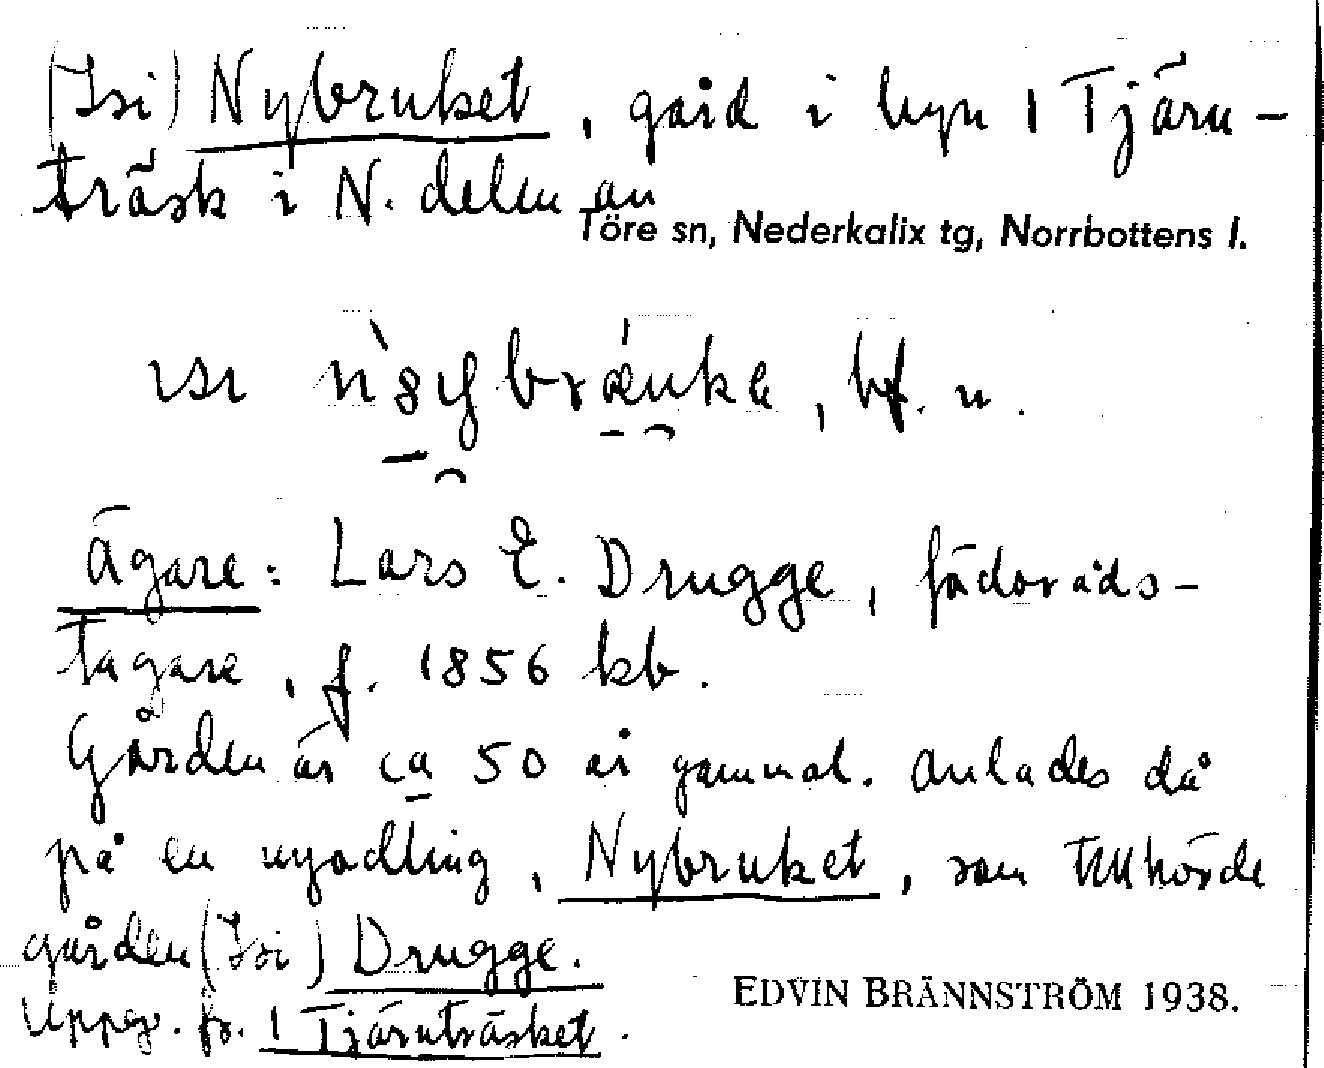 (Isi) Nybruket, gård i byn 1 Tjärn-
träsk i N. delen av
Töre sn, Nederkalix tg, Norrbottens l.
ɪsɪ , bf. n.
Ägare: Lars E. Drugge, födoråds-
tagare, f. 1856 kb.
Gården är ca 50 år gammal. Anlades då
på en nyodling, Nybruket, som tillhörde
gården (Isi) Drugge.
Uppg. fr. 1 Tjärnträsket.
EDVIN BRÄNNSTRÖM 1938.